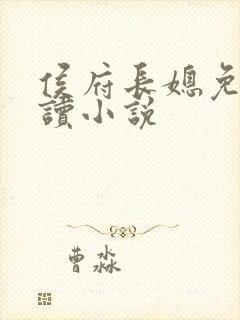 侯府長媳免
讀小説
曹淼